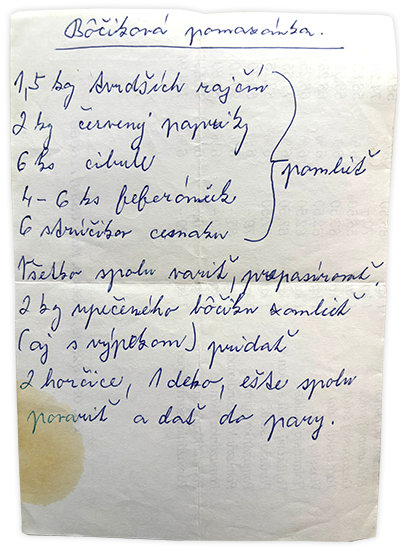 Bôčiková pomazánka.
1,5 kg tvrdších rajčín
2 kg červený papriky
6 ks cibule
4-6 ks feferónček
6 strúčikov cesnaku
pomlieť
Všetko spolu variť, prepasírovať,
2 kg upečeného bôčiku zomlieť
(aj s výpekom) pridať
2 horčice, 1 deko, ešte spolu
povariť a dať do pary.